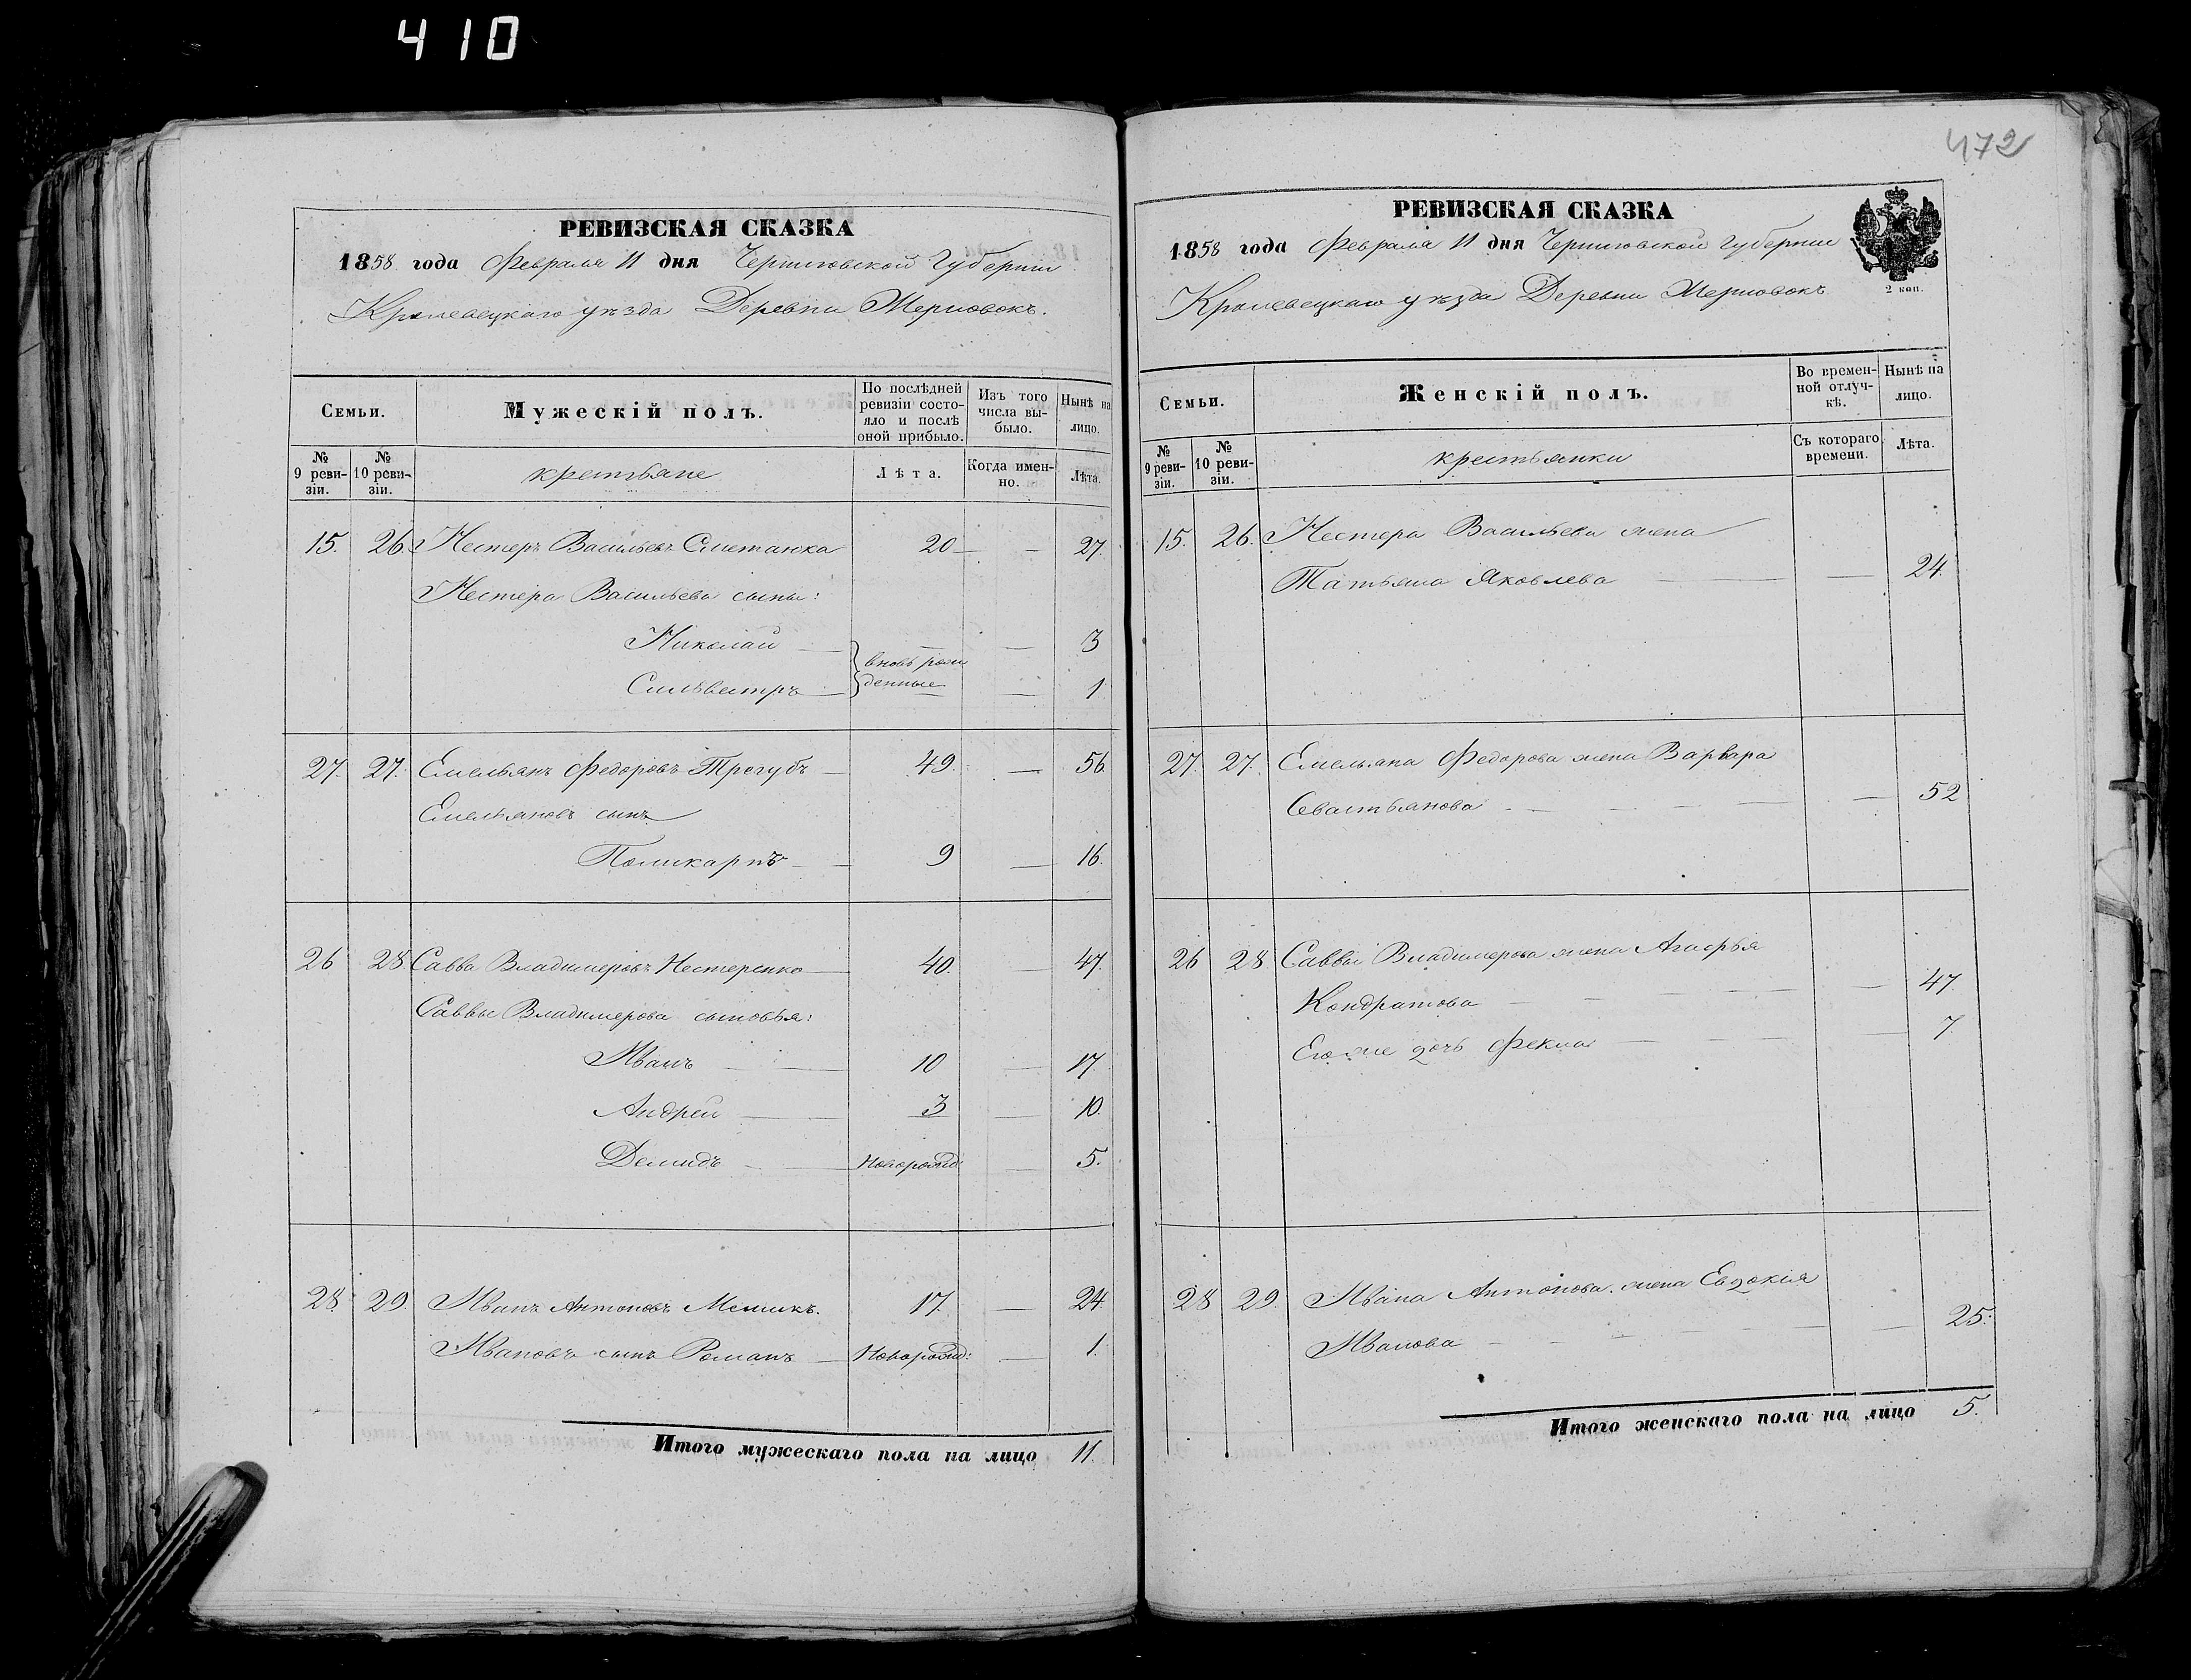 410
472
РЕВИЗСКАЯ СКАЗКА
1858 года Февраля 11 дня Черниговской Губернии
Кролевецкаго уѣзда Деревни Жерновокъ.
Семьи.
Мужескій полъ.
По послѣдней ревизіи состояло и послѣ оной прибыло.
Изъ того числа выбыло.
Нынѣ на лицо.
№ 9 ревизіи.
№ 10 ревизіи.
крестьяне
Лѣта.
Когда именно.
Лѣта.
15. 26. Нестеръ Васильевъ Сметанка 20 — — 27
Нестера Васильева сыны:
Николай — — 3
вновь рожденные
Сильвестръ — — 1
27. 27. Емельянъ Федоровъ Трегубъ — 49. — 56
Емельяновъ сынъ
Поликарпъ — — 9 — 16.
26 28 Савва Владимеровъ Нестеренко — 40. — 47.
Саввы Владимерова сыновья:
Иванъ — — 10 — 17.
Андрей — — 3 — 10.
Демидъ — — Новорожд: — 5.
28. 29. Иванъ Антоновъ Мешикъ. 17. — 24.
Ивановъ сынъ Романъ — Новорожд: — 1.
Итого мужескаго пола на лицо 11.
РЕВИЗСКАЯ СКАЗКА
1858 года Февраля 11 дня Черниговской Губернии
Кролевецкаго уѣзда Деревни Жерновокъ
2 коп.
Семьи.
Женскій полъ.
Во временной отлучкѣ.
Нынѣ на лицо.
№ 9 ревизіи.
№ 10 ревизіи.
крестьянки
Съ котораго времени.
Лѣта.
15. 26. Нестера Васильева жена
Татьяна Яковлева — — 24.
27. 27. Емельяна Федорова жена Варвара
Севастьянова — — — — 52
26 28 Саввы Владимерова жена Агафья
Кондратова — — — — — 47.
Его же дочь Фекла — — — — 7
28 29. Ивана Антонова жена Евдокия
Иванова — — — — — — 25.
Итого женскаго пола на лицо 5.